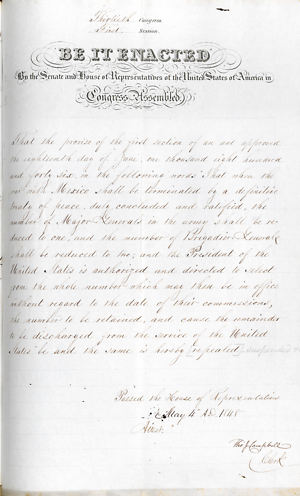 Thirtieth Congress
First Session.
BE IT ENACTED
By the Senate and House of Representatives of the United States of America in
Congress Assembled,
That the proviso of the first section of an act approved
the eighteenth day of June, one thousand eight hundred
and forty six, in the following words That when the
war with Mexico shall be terminated by a definitive
treaty of peace, duly concluded and ratified, the
number of Major Generals in the army shall be re
duced to one, and the number of Brigadier Generals
shall be reduced to two; and the President of the
United States is authorized and directed to select
from the whole number which may then be in office
without regard to the date of their commissions,
the number to be retained, and cause the remainder
to be discharged from the service of the United
States be and the same is hereby repealed
Passed the House of Representatives
May 4th AD 1848
Attest.
Tho J Campbell
Clerk